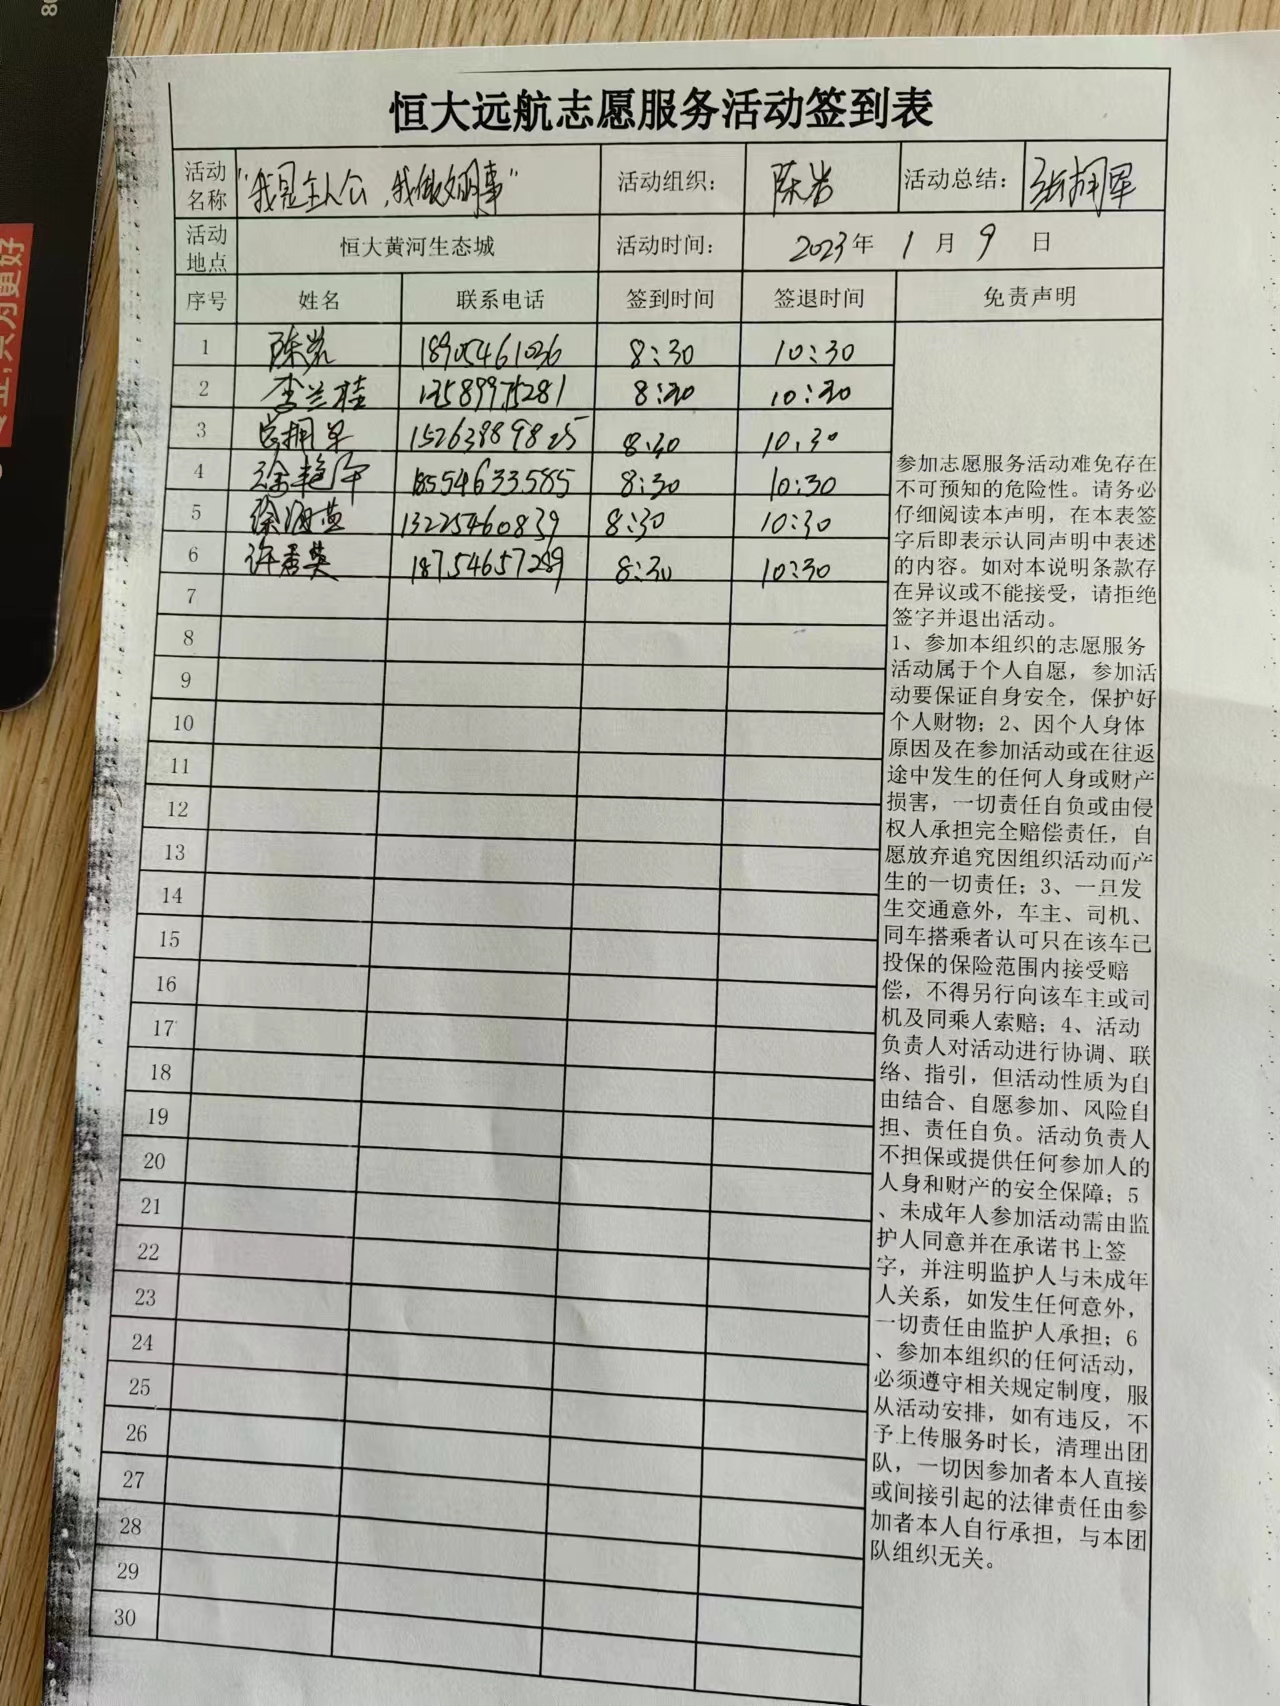 恒大远航志愿服务活动签到表
活动名称 "我是主人公,我做文明事" 活动组织: 陈岩 活动总结: 张拥军
活动地点 恒大黄河生态城 活动时间: 2023年 1 月 9 日
序号 姓名 联系电话 签到时间 签退时间 免责声明
1 陈岩 18905461036 8:30 10:30
2 李兰桂 8:30 10:30
3 15263889825 8:30 10:30
4 徐艳 18554633585 8:30 10:30
5 徐海燕 13225460839 8:30 10:30
6 许秀英 18754657289 8:30 10:30
7
8
9
10
11
12
13
14
15
16
17
18
19
20
21
22
23
24
25
26
27
28
29
30
参加志愿服务活动难免存在
不可预知的危险性。请务必
仔细阅读本声明,在本表签
字后即表示认同声明中表述
的内容。如对本说明条款存
在异议或不能接受,请拒绝
签字并退出活动。
1、参加本组织的志愿服务
活动属于个人自愿,参加活
动要保证自身安全,保护好
个人财物;2、因个人身体
原因及在参加活动或在往返
途中发生的任何人身或财产
损害,一切责任自负或由侵
权人承担完全赔偿责任,自
愿放弃追究因组织活动而产
生的一切责任;3、一旦发
生交通意外,车主、司机、
同车搭乘者认可只在该车已
投保的保险范围内接受赔
偿,不得另行向该车主或司
机及同乘人索赔;4、活动
负责人对活动进行协调、联
络、指引,但活动性质为自
由结合、自愿参加、风险自
担、责任自负。活动负责人
不担保或提供任何参加人的
人身和财产的安全保障;5
、未成年人参加活动需由监
护人同意并在承诺书上签
字,并注明监护人与未成年
人关系,如发生任何意外,
一切责任由监护人承担;6
、参加本组织的任何活动,
必须遵守相关规定制度,服
从活动安排,如有违反,不
予上传服务时长,清理出团
队,一切因参加者本人直接
或间接引起的法律责任由参
加者本人自行承担,与本团
队组织无关。